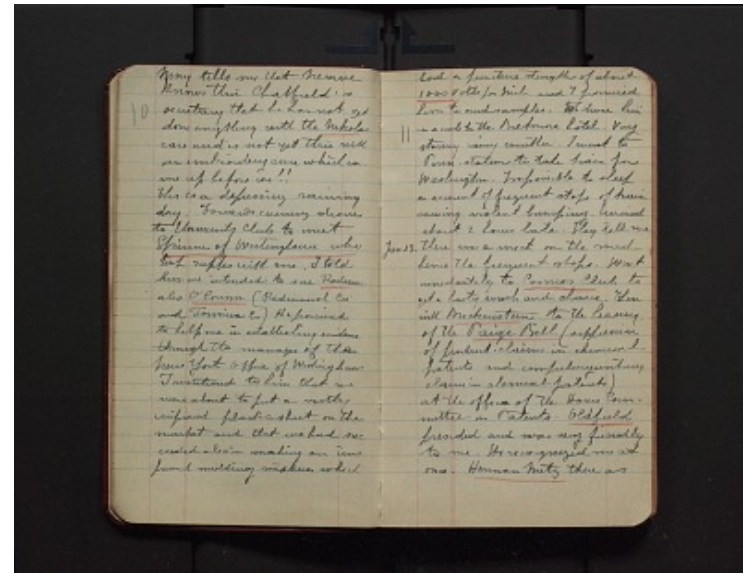 10
tells me that
Chatfield is
that he has not yet
done anything with the
case and is not yet
an embroidering case which
me up before us!!
This is a depressing raining
day. Towards evening
to University Club to meet
of Westinghouse who
took supper with me. I told
him we intended to sue
also O'Conor (Redmanol Co
and Formica Co) He promised
to help me in establishing evidence
through the manager of the
New York Office of Westinghouse
I mentioned to him that we
were about to put a
improved plastic sheet on the
market and that we had
also in making an
molding mixture which
had a puncture strength of about
1000 Volts per Mil and I promised
him to send samples. We
11
a cab to the Biltmore hotel. Very
stormy rainy weather. I went to
Penn. station to take train for
Washington. Impossible to sleep
on account of frequent stops of train
causing violent bumping. Arrived
about 2 hours late. They tell me
Jan 13. there was a on the road
hence the frequent stops. Went
immediately to Cosmos Club to
get a hasty wash and shave. Then
with to the hearing
of the Paige Bill (suppression
of product claims in chemical
patents and compulsory working
clause in chemical patents)
at the office of the House Com-
mittee on Patents. Oldfield
presided and was very friendly
to me. He recognized me at
once. Herman Metz there as